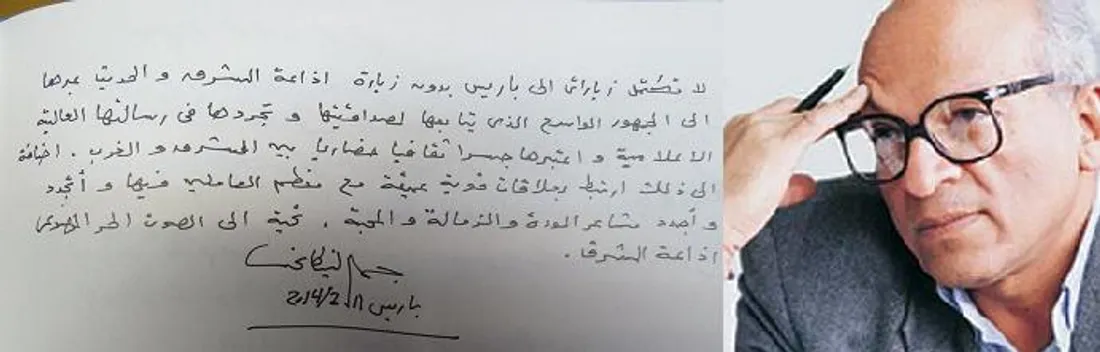 لا تكتمل زياراتي الى باريس بدون زيارة اذاعة الشرق و الحديث عبرها
الى الجمهور الواسع الذي يتابعها لصداقيتها و تجردها في رسالتها العالية
الاعلامية و اعتبرها جسرا ثقافيا حضاريا بين المشرق و الغرب . اضافة
الى ذلك ارتبط بعلاقات قوية عميقة مع معظم العاملين فيها و أتجدد
و أجدد مشاعر المودة والزمالة و المحبة . تحية الى الصوت الحر
اذاعة الشرق .
جمال
باريس 2014/2/